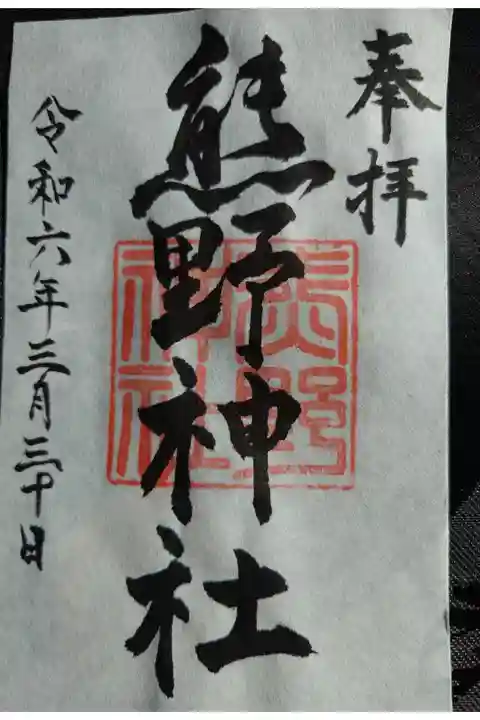 奉拝
熊野神社
熊野
神社
令和六年三月三十日